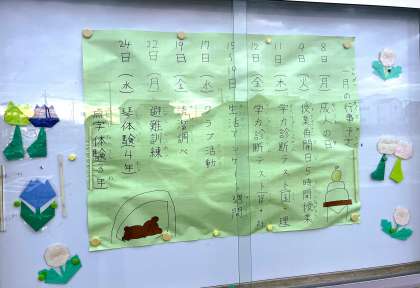 一月の行事予定
8日(月)成人の日
9日(火)給食再開日5時間授業
11日(木)学力診断テスト国・理
12日(金)学力診断テスト算・社
15〜19日 生活アンケート週間
17日(水)クラブ活動
19日(金)調べ
22日(月)避難訓練
24日(水)琴体験4年
点字体験3年